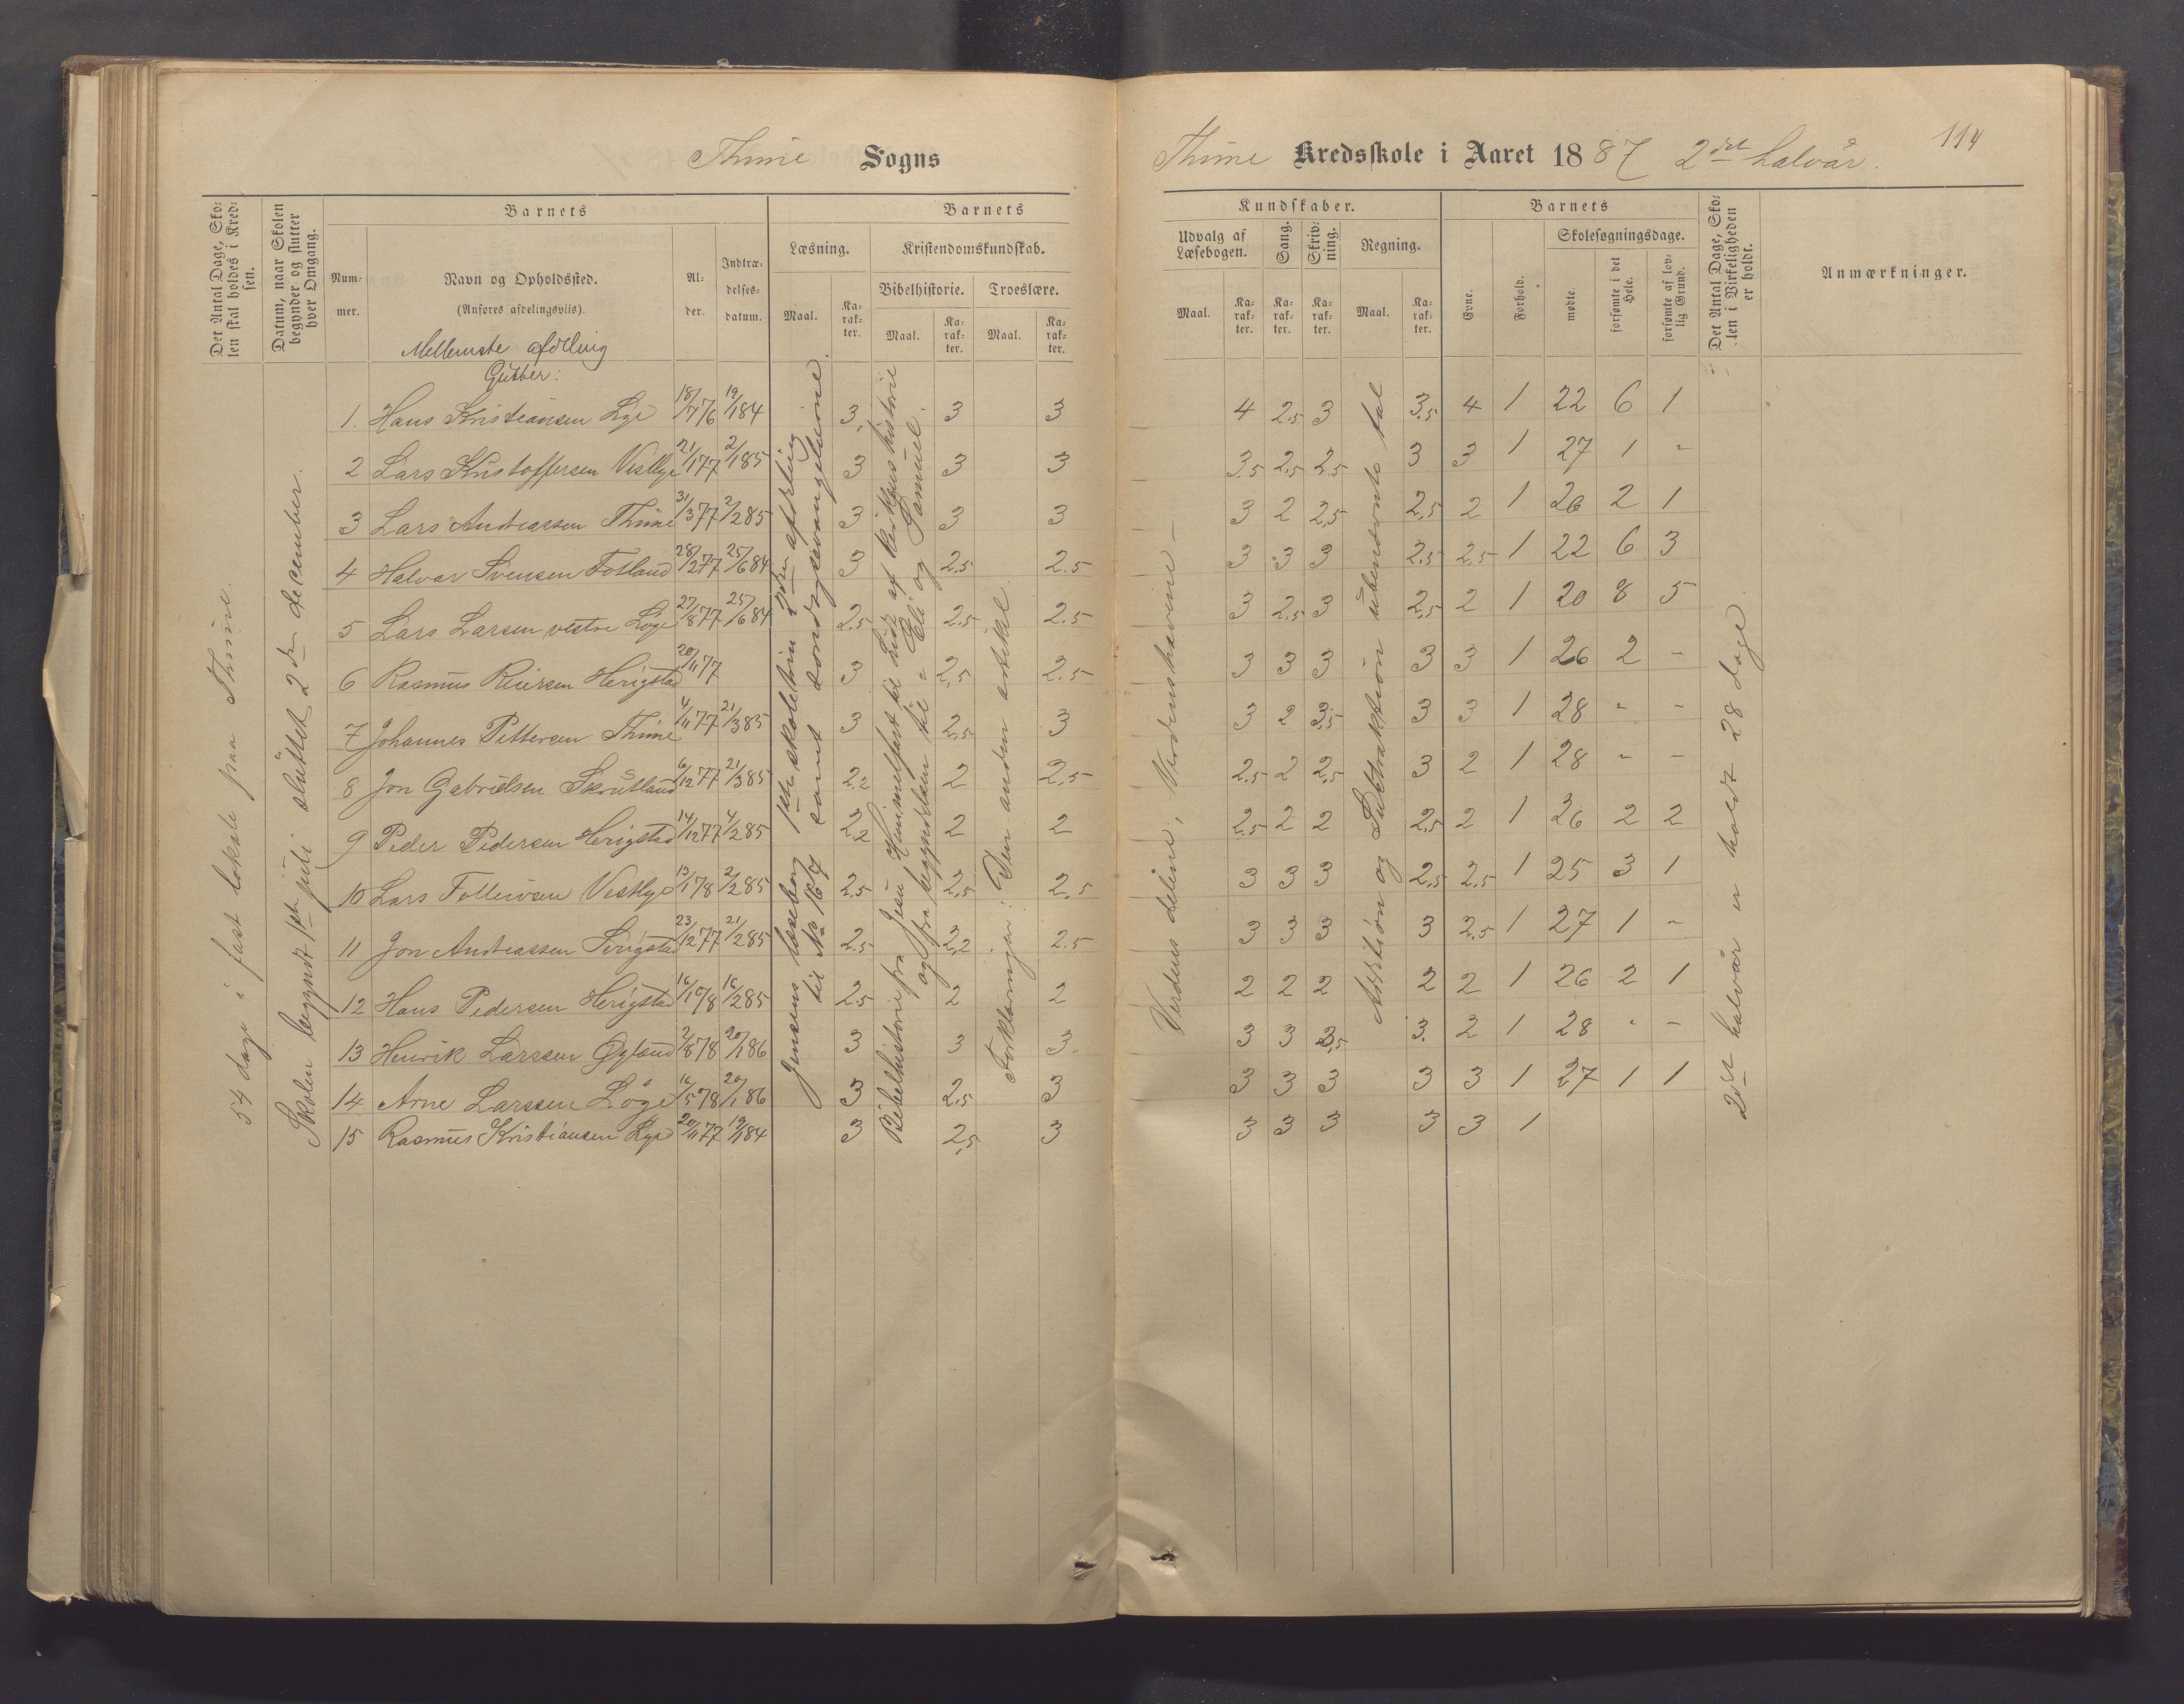 Thime Sogns
Thime Kredsskole i Aaret 1887 2det halvår.
114
Det Antal Dage, Sko-
len skal holdes i Kred-
sen.
Datum, naar Skolen
begynder og slutter
hver Omgang.
Barnets
Num-
mer.
Navn og Opholdssted.
(Anføres afdelingsviis).
Al-
der.
Indtræ-
delses-
datum.
Barnets
Læsning.
Maal.
Ka-
rak-
ter.
Kristendomskundskab.
Bibelhistorie.
Maal.
Ka-
rak-
ter.
Troeslære.
Maal.
Ka-
rak-
ter.
Kundskaber.
Udvalg af
Læsebogen.
Maal.
Ka-
rak-
ter.
Sang.
Ka-
rak-
ter.
Skriv-
ning.
Ka-
rak-
ter.
Regning.
Maal.
Ka-
rak-
ter.
Barnets
Evne.
Forhold.
Skolesøgningsdage.
mødte.
forsømte i det
Hele.
forsømte af lov-
lig Grund.
Det Antal Dage, Sko-
len i Virkeligheden
er holdt.
Anmærkninger.
Mellemste afdeling
Gutter:
54 dage i fast lokale paa Thime.
Skolen begyndt 1ste juli sluttet 2den december.
Jensens læsebog 1ste skoletrin 2den afdeling
til No 167 samt søndagsevangelierne
Bibelhistorie fra Jesu Himmelfart til Luds af kirkens historie
og fra begyndelsen til Eli og Samuel.
Forklaringen: Den anden artikel
Verdens delene, Verdenshavene –
Addition og Subtraktion ubenævnte tal
2det halvår er holdt 28 dage.
1. Hans Kristiansen Lye 18/7 76 19/1 84 3. 3 3 4 2.5 3 3.5 4 1 22 6 1
2 Lars Kristoffersen Vestlye 21/1 77 2/1 85 3 3 3 3.5 2.5 2.5 3 3 1 27 1 -
3 Lars Andreassen Thime 31/3 77 2/2 85 3 3 3 3 2 2.5 2.5 2 1 26 2 1
4 Halvar Svensen Fotland 28/2 77 25/6 84 3 2.5 2.5 3 3 3 2.5 2.5 1 22 6 3
5 Lars Larsen vestre Løge 27/8 77 25/6 84 2.5 2.5 2.5 3 2.5 3 2.5 2 1 20 8 5
6 Rasmus Reiersen Herigstad 20/11 77 3 2.5 2.5 3 3 3 3 3 1 26 2 -
7 Johannes Pettersen Thime 4/11 77 21/3 85 3 2.5 3 3 2 3.5 3 3 1 28 - -
8 Jon Gabrielsen Skrutland 6/12 77 21/3 85 2.2 2 2.5 2.5 2 2.5 3 2 1 28 - -
9 Peder Pedersen Herigstad 14/12 77 4/2 85 2.2 2 2 2.5 2 2 2.5 2 1 26 2 2
10 Lars Tolleivsen Vestlye 13/1 78 2/2 85 2.5 2.5 2.5 3 3 3 2.5 2.5 1 25 3 1
11 Jon Andreassen Herigstad 23/12 77 21/2 85 2.5 2.2 2.5 3 3 3 3 2.5 1 27 1 -
12 Hans Pedersen Herigstad 16/10 78 16/2 85 2.5 2 2 2 2 2 2 2 1 26 2 1
13 Henrik Larssen Øgland 2/8 78 20/1 86 3 3 3. 3 3 3.5 3. 2 1 28 - -
14 Arne Larssen Løge 16/5 78 20/1 86 3 2.5 3 3 3 3 3 3 1 27 1 1
15 Rasmus Kristiansen Lye 20/11 77 19/1 84 3 2.5 3 3 3 3 3 3 1